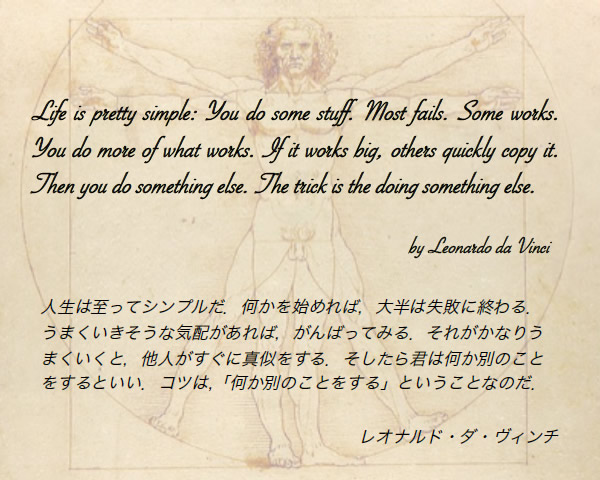 Life is pretty simple: You do some stuff. Most fails. Some works.
You do more of what works. If it works big, others quickly copy it.
Then you do something else. The trick is the doing something else.
by Leonardo da Vinci
人生は至ってシンプルだ．何かを始めれば，大半は失敗に終わる．
うまくいきそうな気配があれば，がんばってみる．それがかなりう
まくいくと，他人がすぐに真似をする．そしたら君は何か別のこと
をするといい．コツは，「何か別のことをする」ということなのだ．
レオナルド・ダ・ヴィンチ